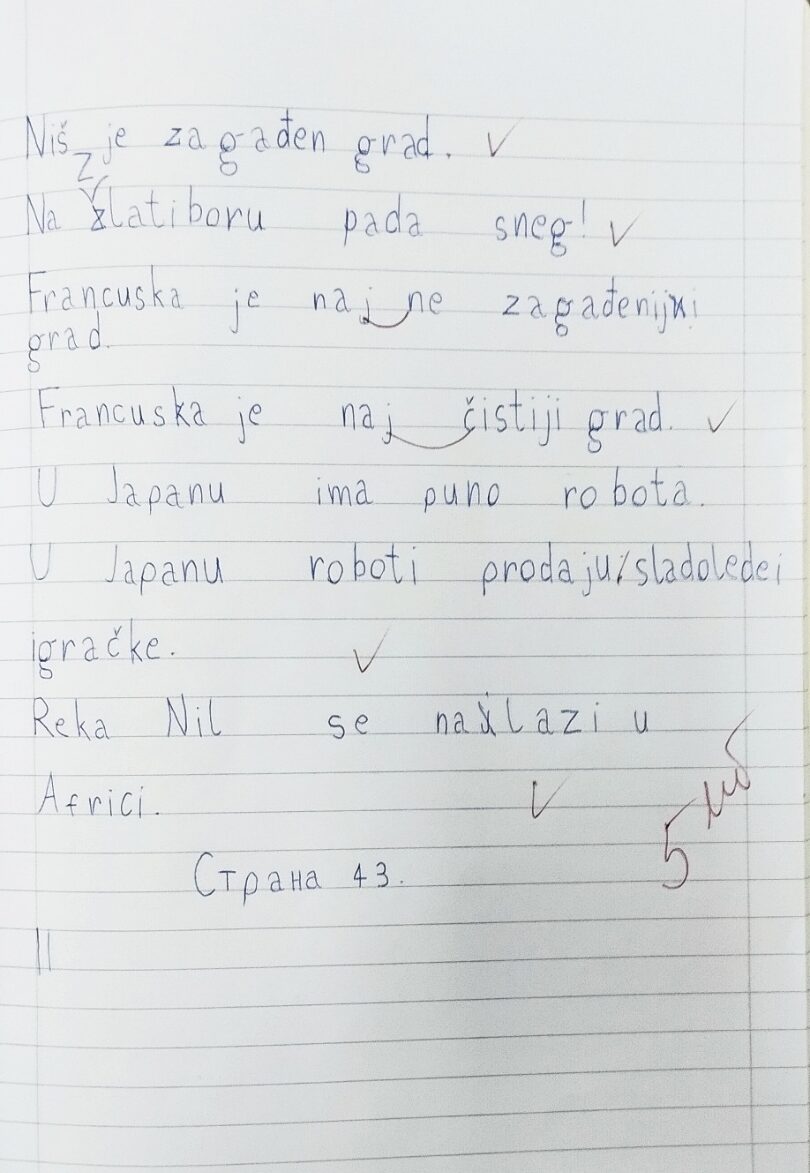 Niš je zagađen grad.
Na Zlatiboru pada sneg!
Francuska je naj ne zagađeniji
grad.
Francuska je naj čistiji grad.
U Japanu ima puno robota.
U Japanu roboti prodaju sladolede i
igračke.
Reka Nil se nalazi u
Africi.
5
Страна 43.